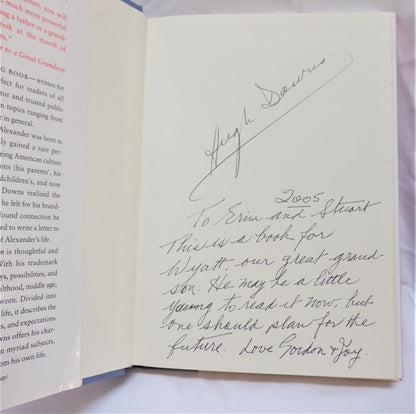 time, you will
so much more powerful
ing a father or a grand-
ook at the march of
s."
r to a Great Grandson
G BOOK—written for
fect for readers of all
tor and trusted public
n topics ranging from
e in general.
Alexander was born
ly gained a rare per-
eing American culture
ions (his parents', his
dchildren's, and now
Downs realized the
he felt for his brand-
found connection he
cided to write a letter to
of Alexander's life.
is thoughtful and
With his trademark
ys, possibilities, and
ulthood, middle age,
tween. Divided into
he describes the
s, and expectations
owns offers his char-
n myriad subjects,
om his own life.
ap/
Hugh Downs
2005
To Erin and Stuart
This is a book for
Wyatt, our great grand-
son. He may be a little
young to read it now, but
one should plan for the
future. Love Gordon + Joy.